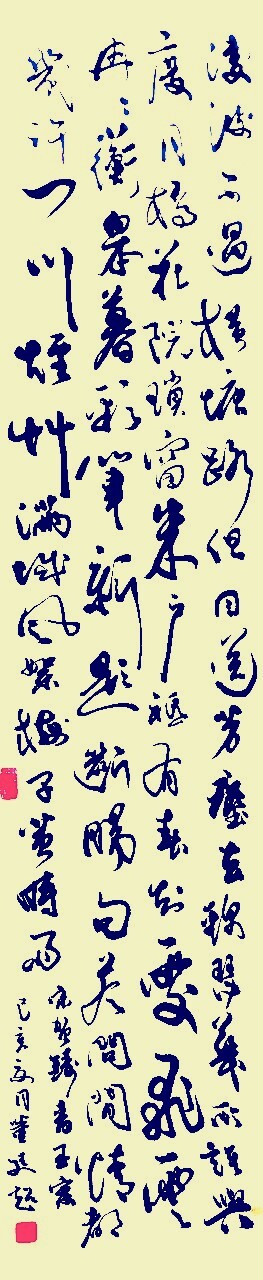 凌波不過橫塘路但目送芳塵去錦瑟華年誰與
度月橋花院瑣窗朱戶祗有春知處飛雲
冉冉蘅皋暮彩筆新題斷腸句若問閒情都
幾許一川煙艸滿城風絮梅子黃時雨
宋賀鑄青玉案
己亥夏月董超